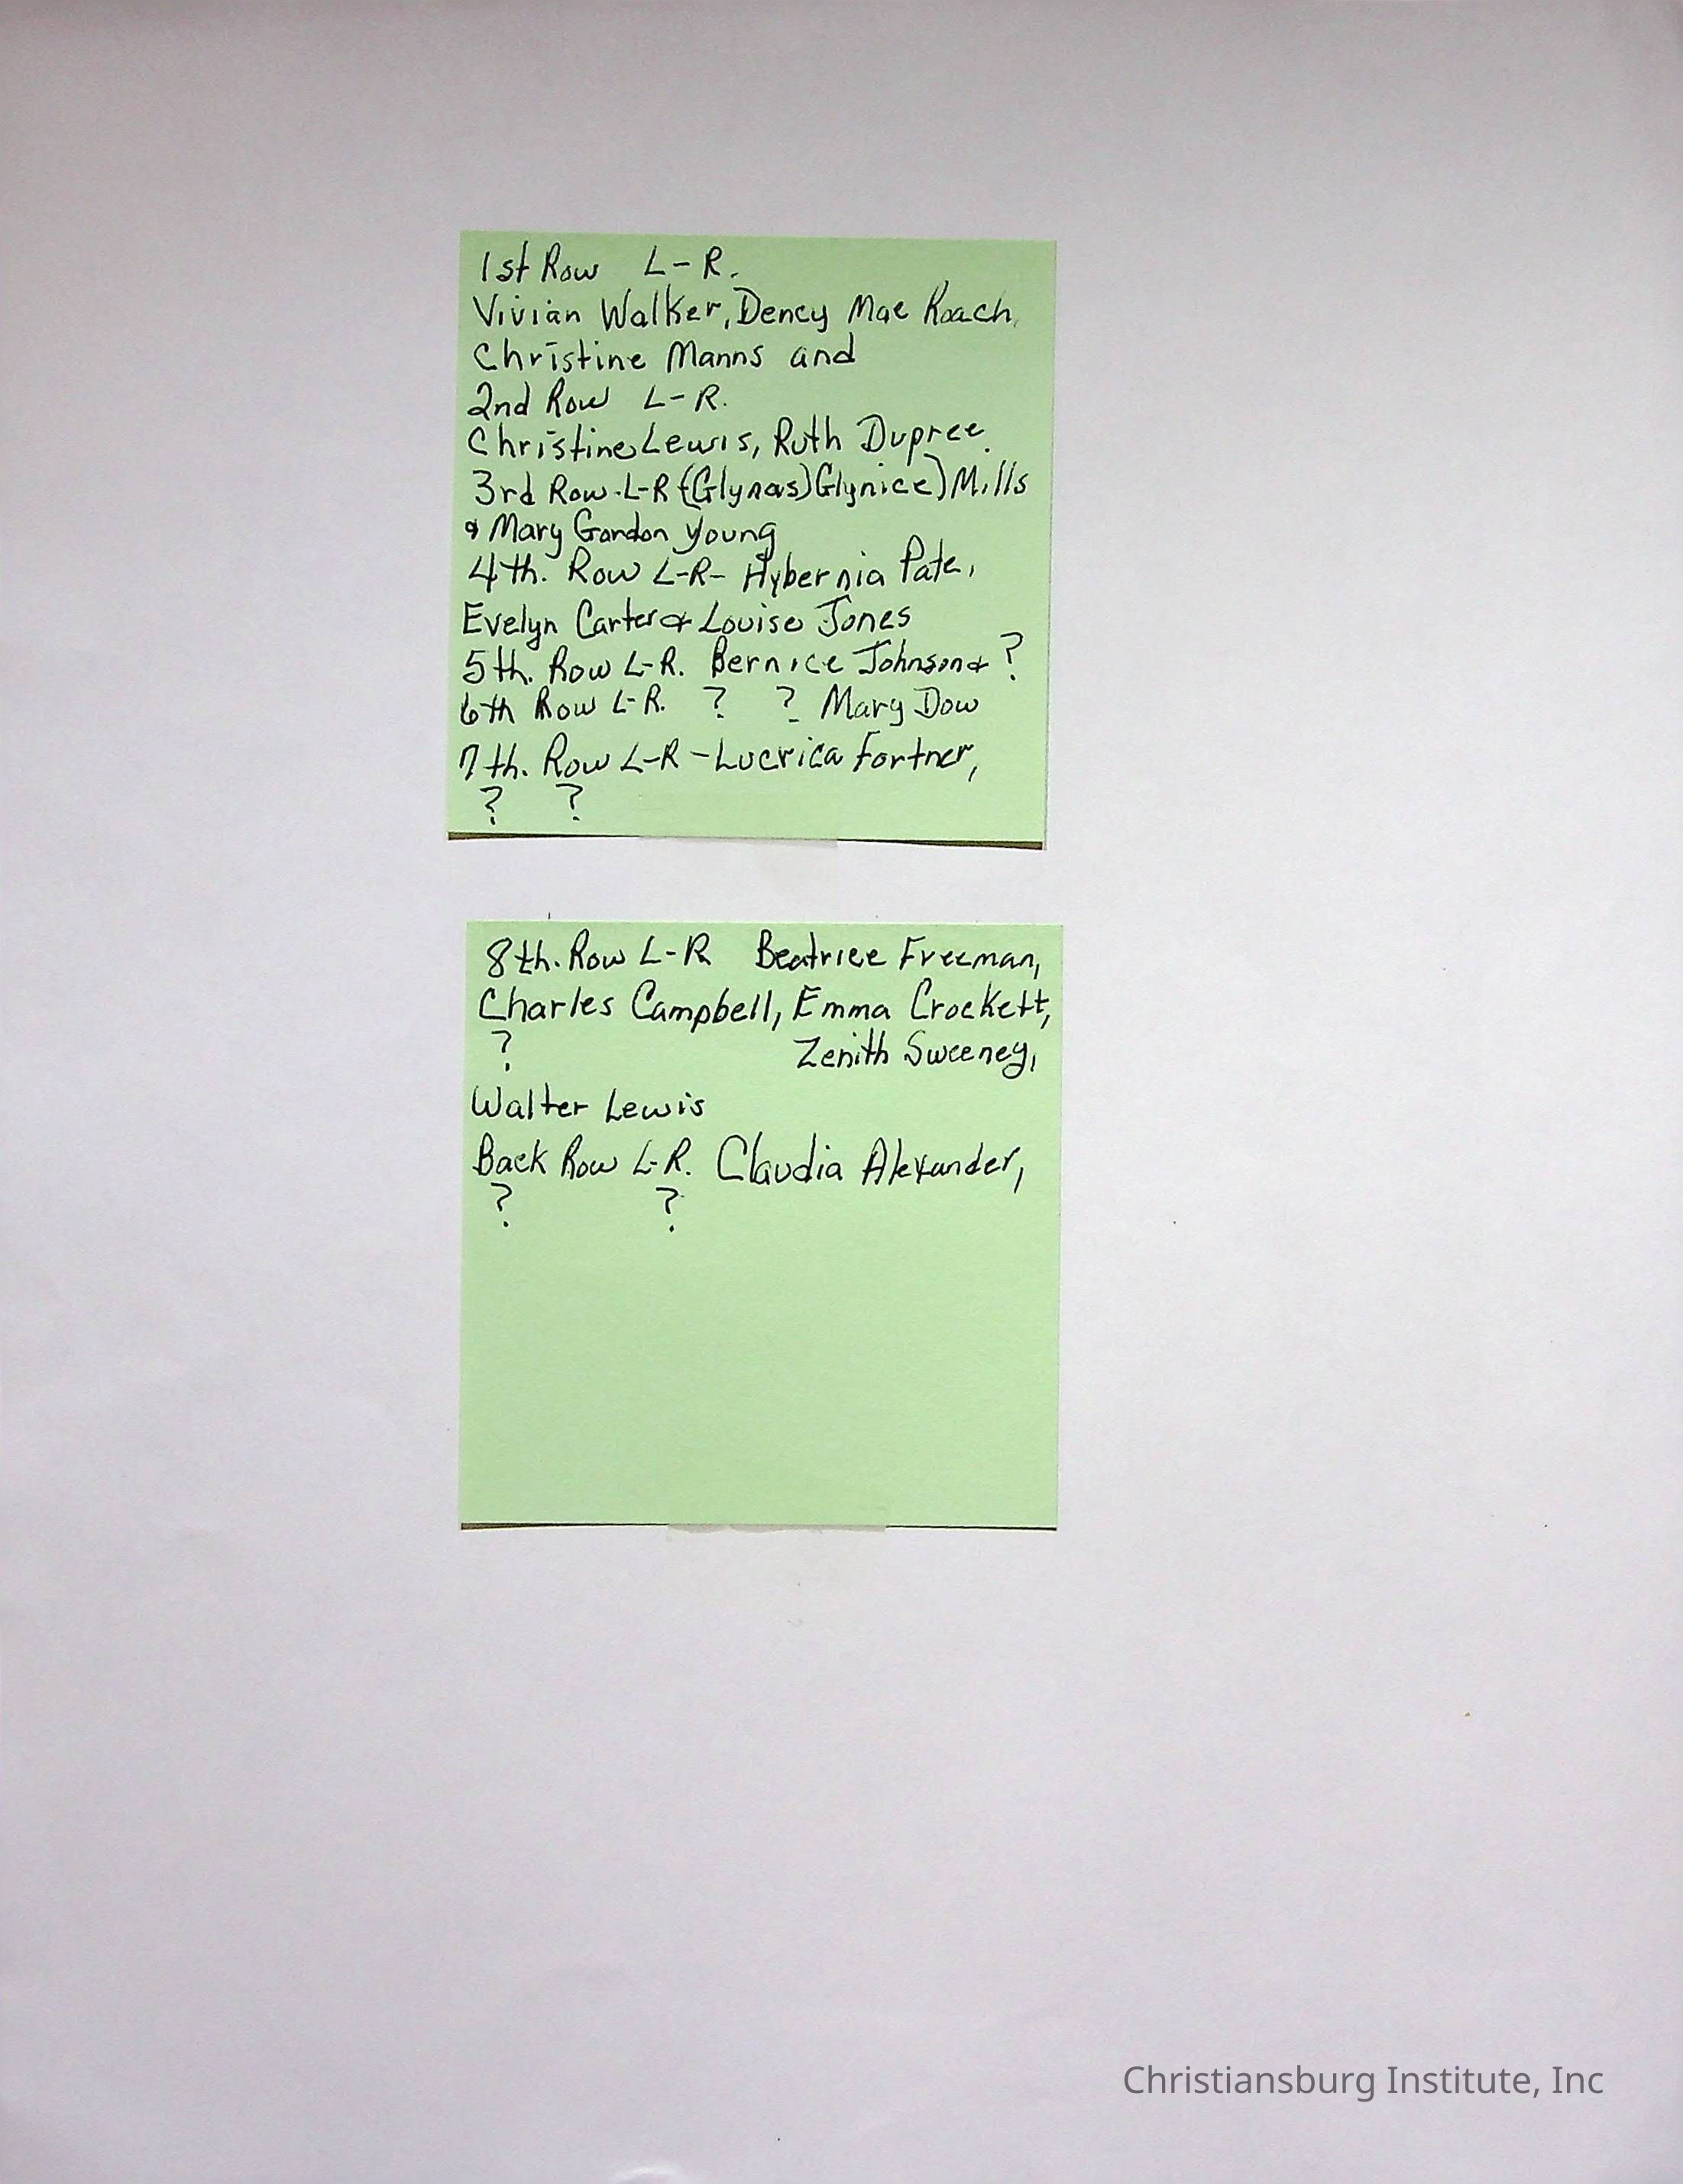 1st Row L-R.
Vivian Walker, Dency Mae Roach,
Christine Manns and
2nd Row L-R.
Christine Lewis, Ruth Dupree.
3rd Row-L-R (Glynas) Glynice) Mills
& Mary Gordon Young
4th. Row L-R- Hybernia Pate,
Evelyn Carter & Louise Jones
5th. Row L-R. Bernice Johnson & ?
6th Row L-R. ? ? Mary Dow
7th. Row L-R - Lucrica Fortner,
? ?
8th. Row L-R Beatrice Freeman,
Charles Campbell, Emma Crockett,
? Zenith Sweeney,
Walter Lewis
Back Row L-R. Claudia Alexander,
? ?
Christiansburg Institute, Inc